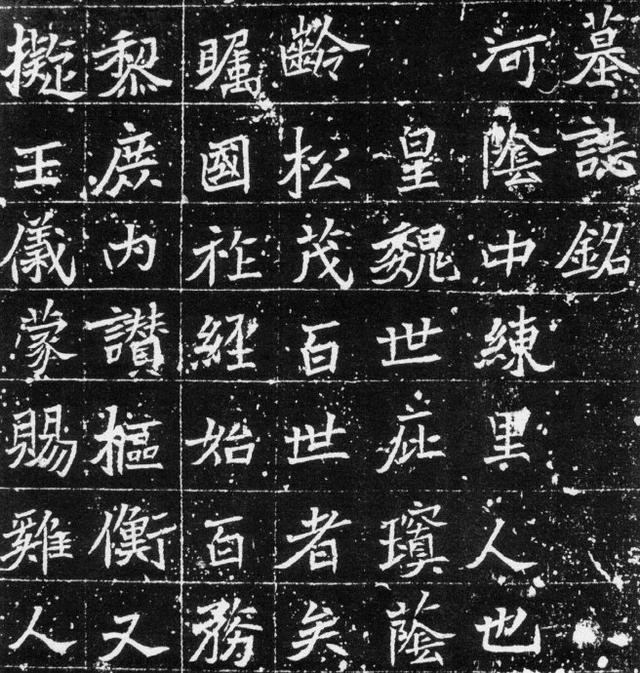 墓誌銘
河陰中練里人也
皇魏世蔭
齡松茂百世者矣
矚國祚經始百務
黎庶內讚樞衡又
擬王儀蒙賜雞人